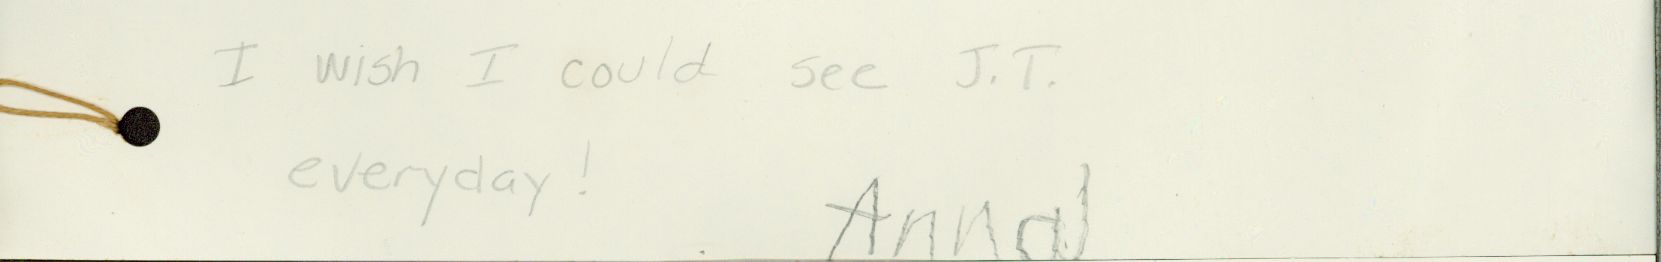 I wish I could see J.T.
everyday!
Anna